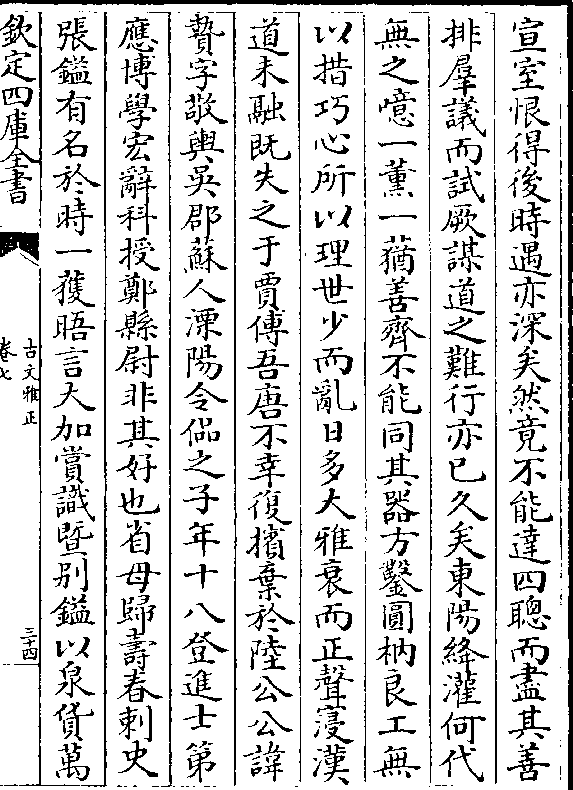 宣室恨得後時遇亦深矣然竟不能達四聰而盡其善
排羣議而試厥謀道之難行亦已久矣東陽絳灌何代
無之噫一薰一蕕善齊不能同其器方鑿圓枘良工無
以措巧心所以理世少而亂日多大雅衰而正聲寖漢
道未融既失之于賈傅吾唐不幸復擯棄於陸公公諱
贄字敬輿吳郡蘇人溧陽令偘之子年十八登進士第
應博學宏辭科授鄭縣尉非其好也省母歸壽春刺史
張鎰有名於時一獲晤言大加賞識暨别鎰以泉貨萬
欽定四庫全書
古文雅正
卷七
三十四